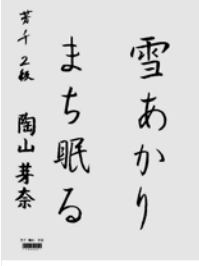 雪あかり
まち眠る
芳千2級 陶山芽奈